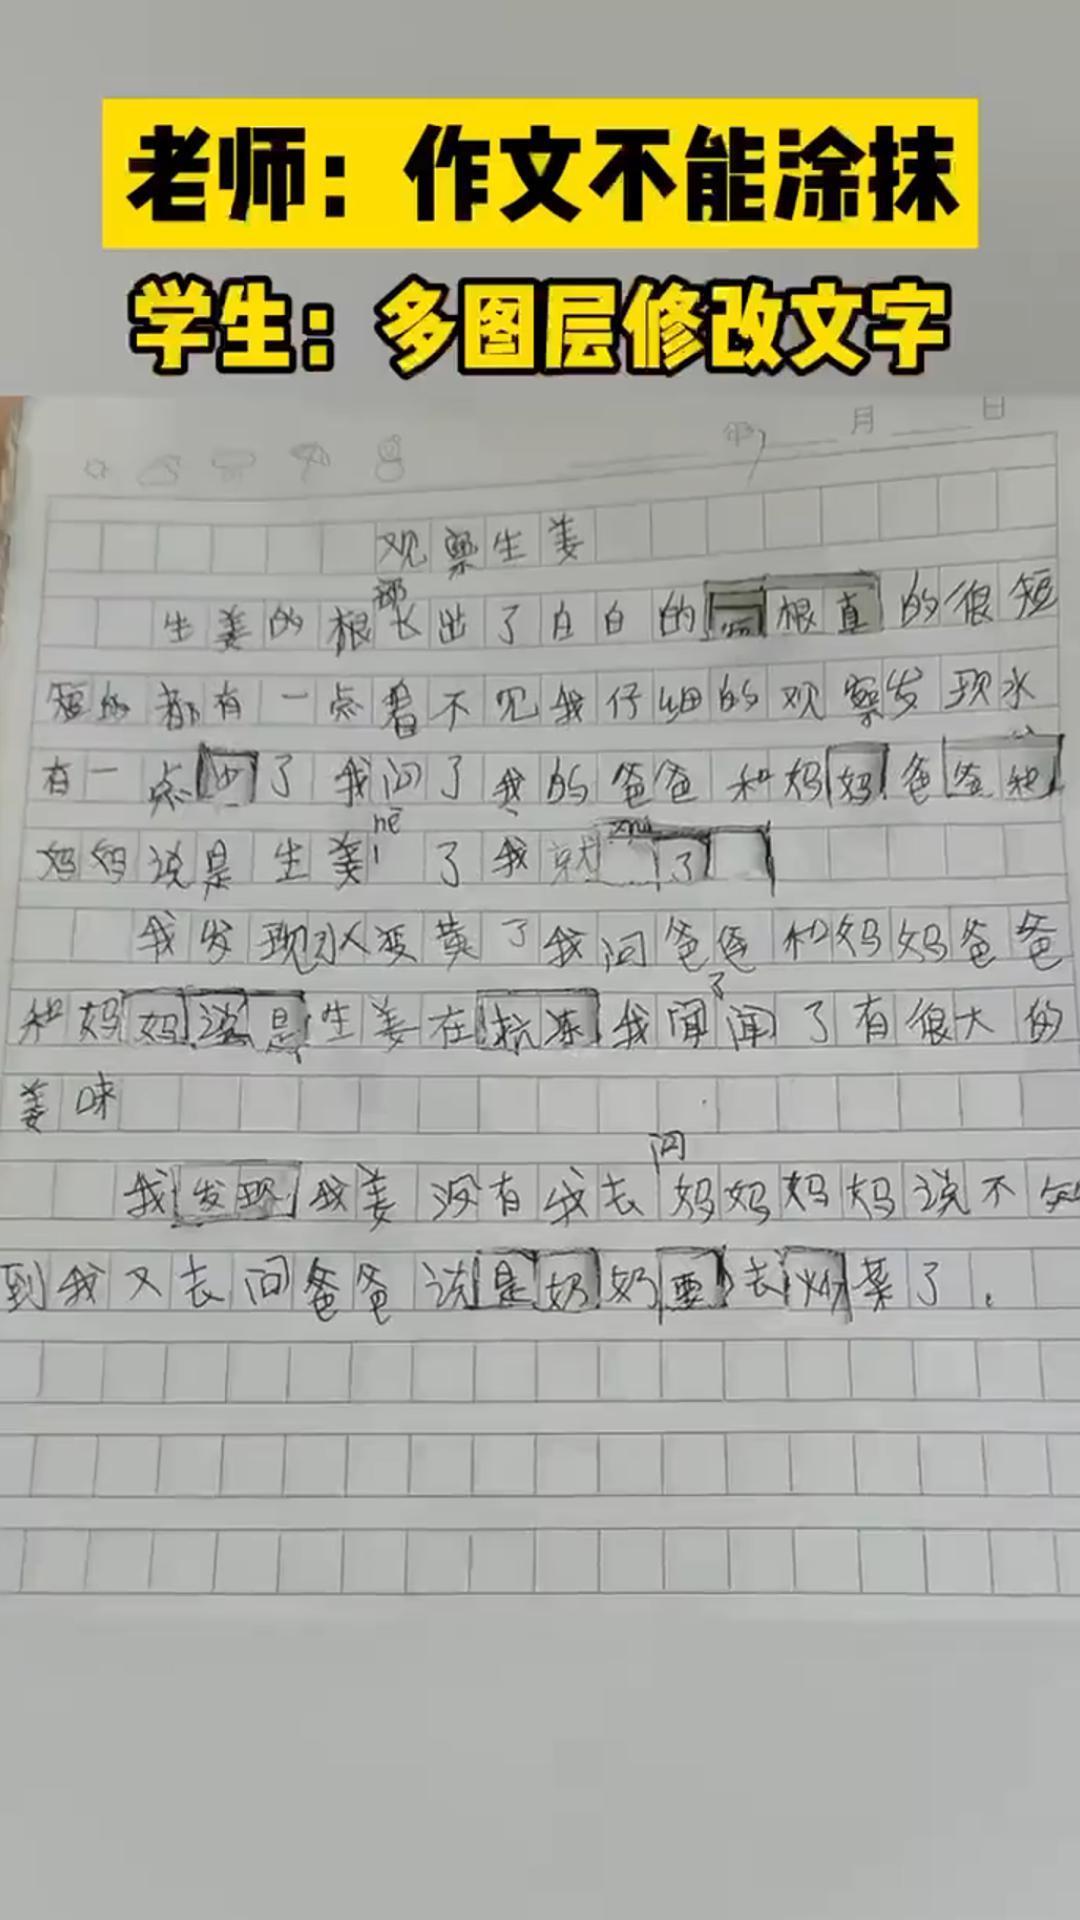 老师：作文不能涂抹
学生：多图层修改文字
年 月 日
观察生姜
部
生姜的根长出了白白的 根真的很短
短的都有一点看不见我仔细的观察发现水
有一点少了我问了我的爸爸和妈妈爸爸和
nē
妈妈说是生姜 了我就 了
我发现水变黄了我问爸爸和妈妈爸爸
和妈妈说是生姜在抗冻我闻了闻了有很大的
姜味
问
我发现我姜没有我去妈妈妈妈说不知
到我又去问爸爸说是奶奶要去炒菜了。